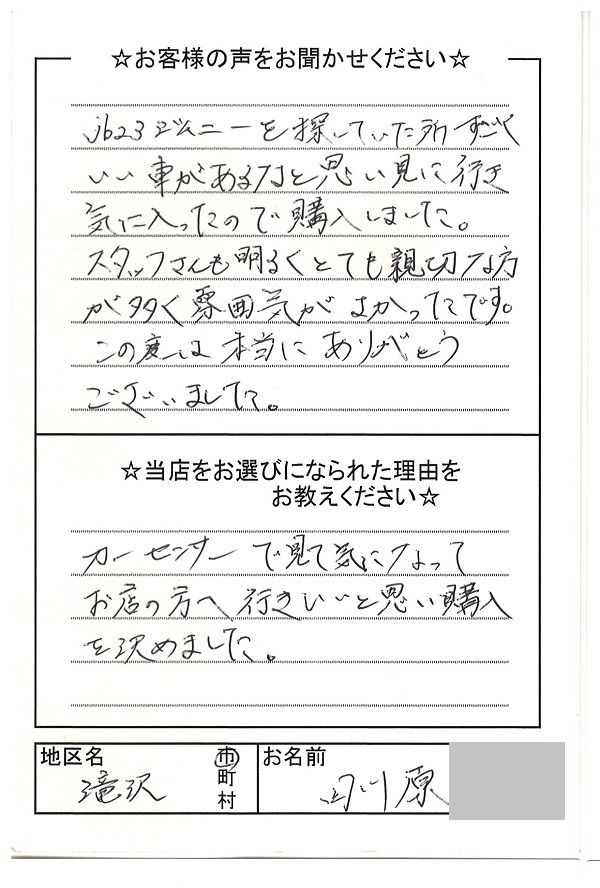 ☆お客様の声をお聞かせください☆
jb23ジムニーを探していた所すごく
いい車があるなと思い見に行き
気に入ったので購入しました。
スタッフさんも明るくとても親切な方
が多く雰囲気がよかったです。
この度は本当にありがとう
ございました。
☆当店をお選びになられた理由を
お教えください☆
カーセンサーで見て気になって
お店の方へ行きいいと思い購入
を決めました。
地区名 滝沢 市町村 お名前 川原